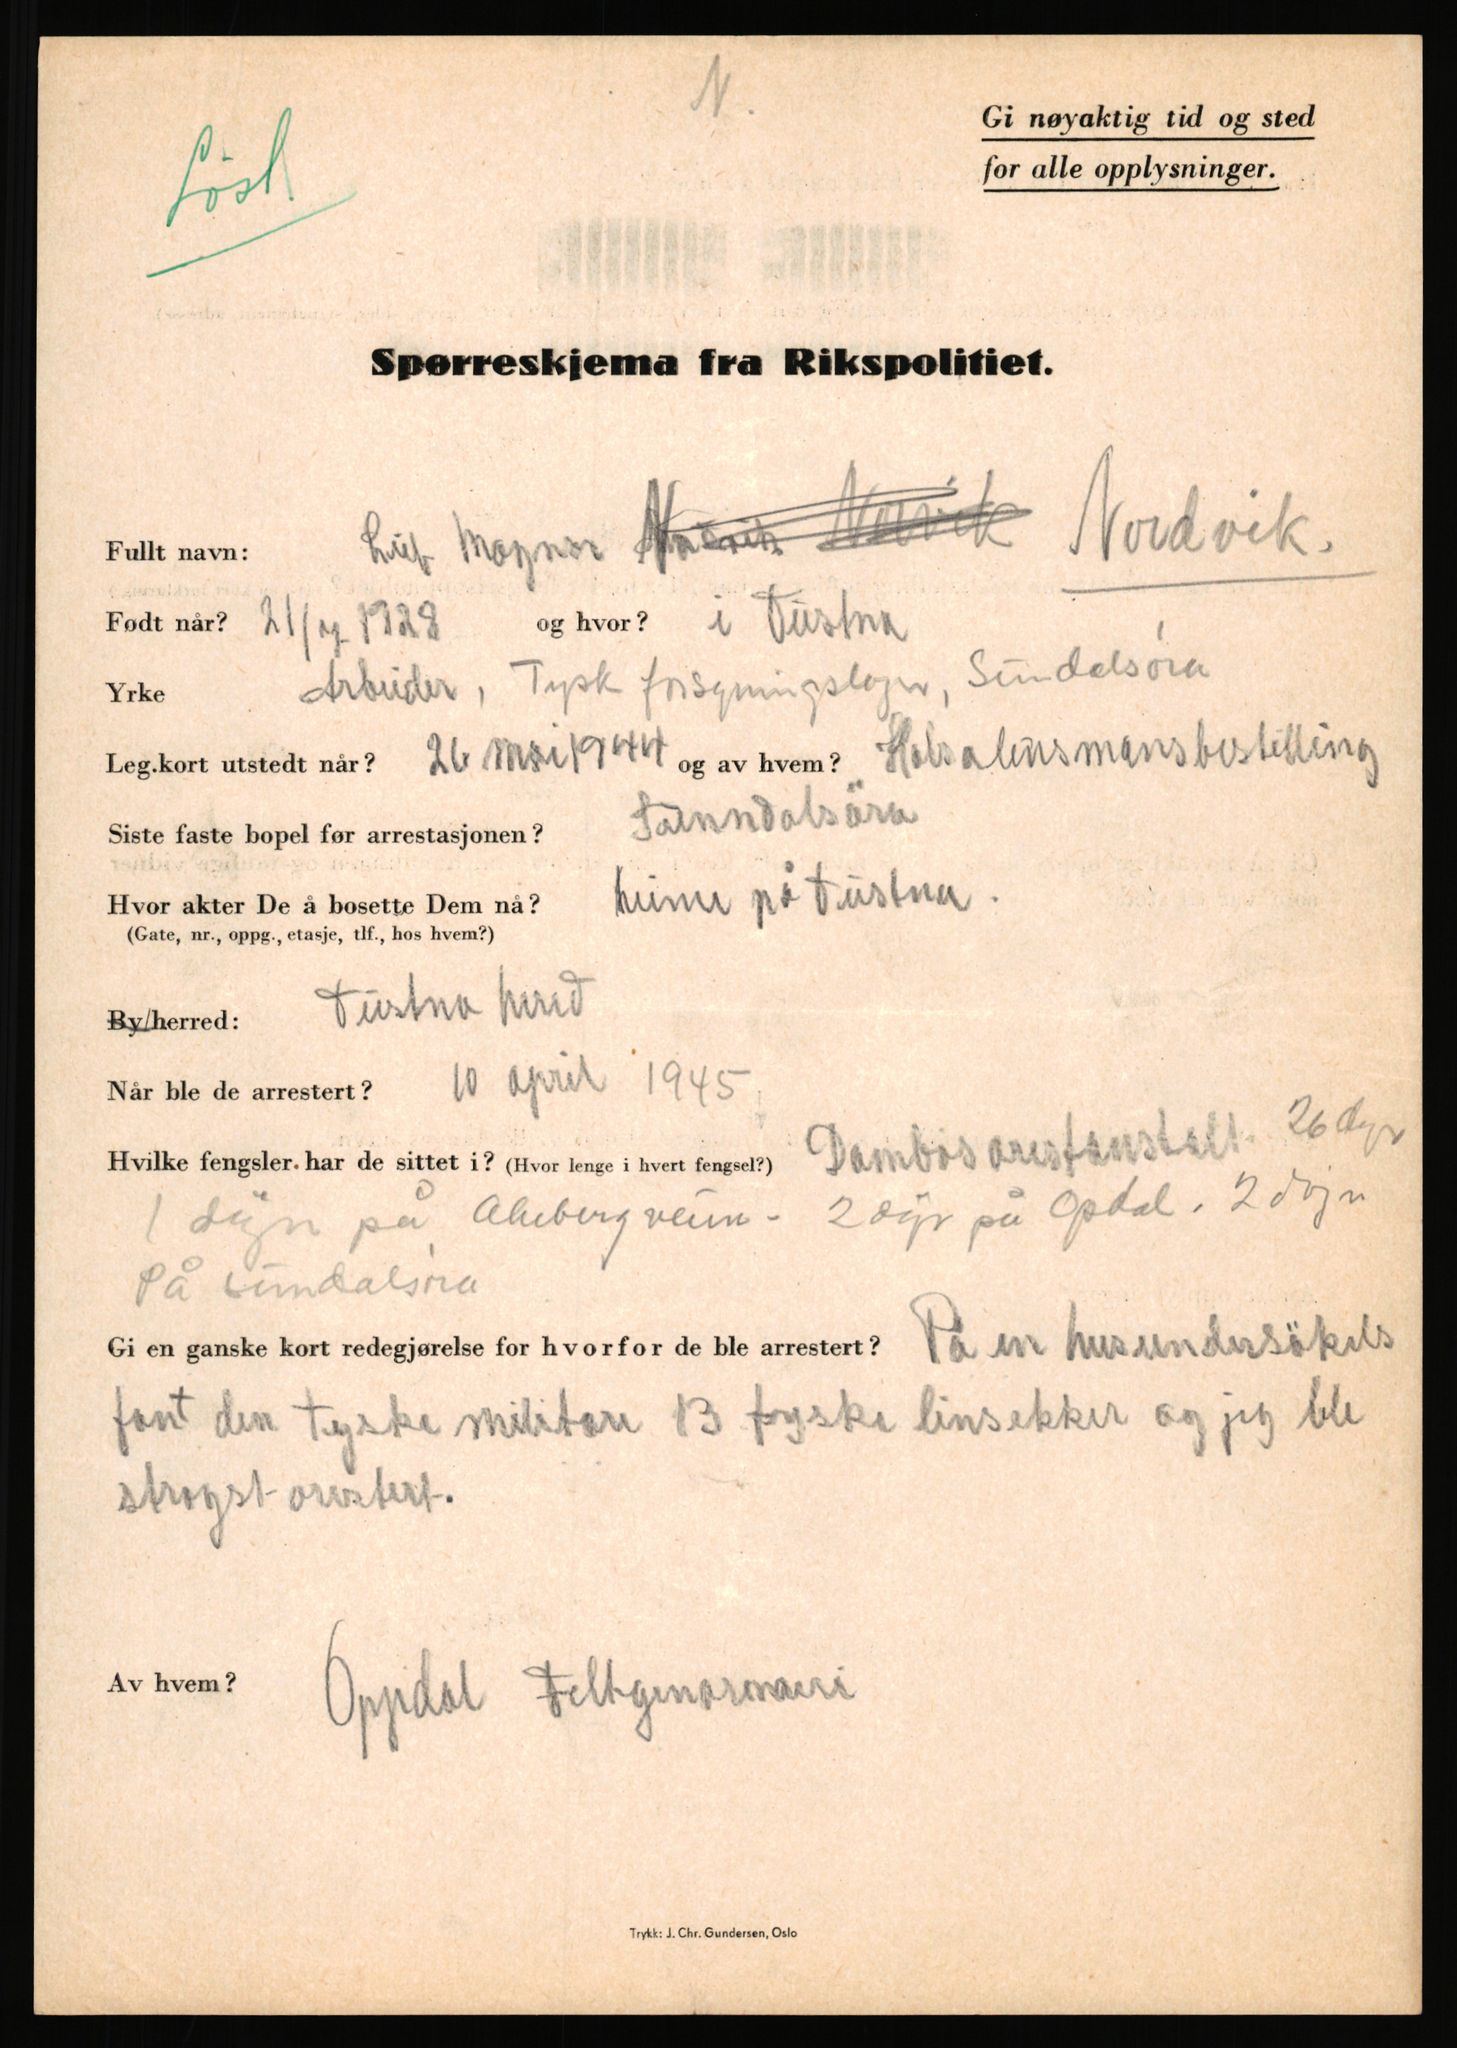 N.
Gi nøyaktig tid og sted
for alle opplysninger.
Løsl
Spørreskjema fra Rikspolitiet.
Fullt navn: Leif Magnar Norvik Nordvik.
Født når? 21/ag 1928 og hvor? i Tustna
Yrke Arbeider, Tysk forsyningslager, Sundalsøra
Leg.kort utstedt når? 26 Mai 1944 og av hvem? Halsa lensmansbestilling
Siste faste bopel før arrestasjonen? Sunndalsöra
Hvor akter De å bosette Dem nå? heime på Tustna.
(Gate, nr., oppg., etasje, tlf., hos hvem?)
By/herred: Tustna hered
Når ble de arrestert? 10 april 1945
Hvilke fengsler har de sittet i? (Hvor lenge i hvert fengsel?) Dombås arestanstalt. 26 døgn
1 døgn på Akebergveien - 2 døgn på Opdal. 2 døgn
På sundalsøra
Gi en ganske kort redegjørelse for hvorfor de ble arrestert? På en husundersökels
fant den tyske militære 13 tyske linsekker og jeg ble
stragst arestert.
Av hvem? Oppdal Feltgenarmaeri
Trykk: J. Chr. Gundersen, Oslo